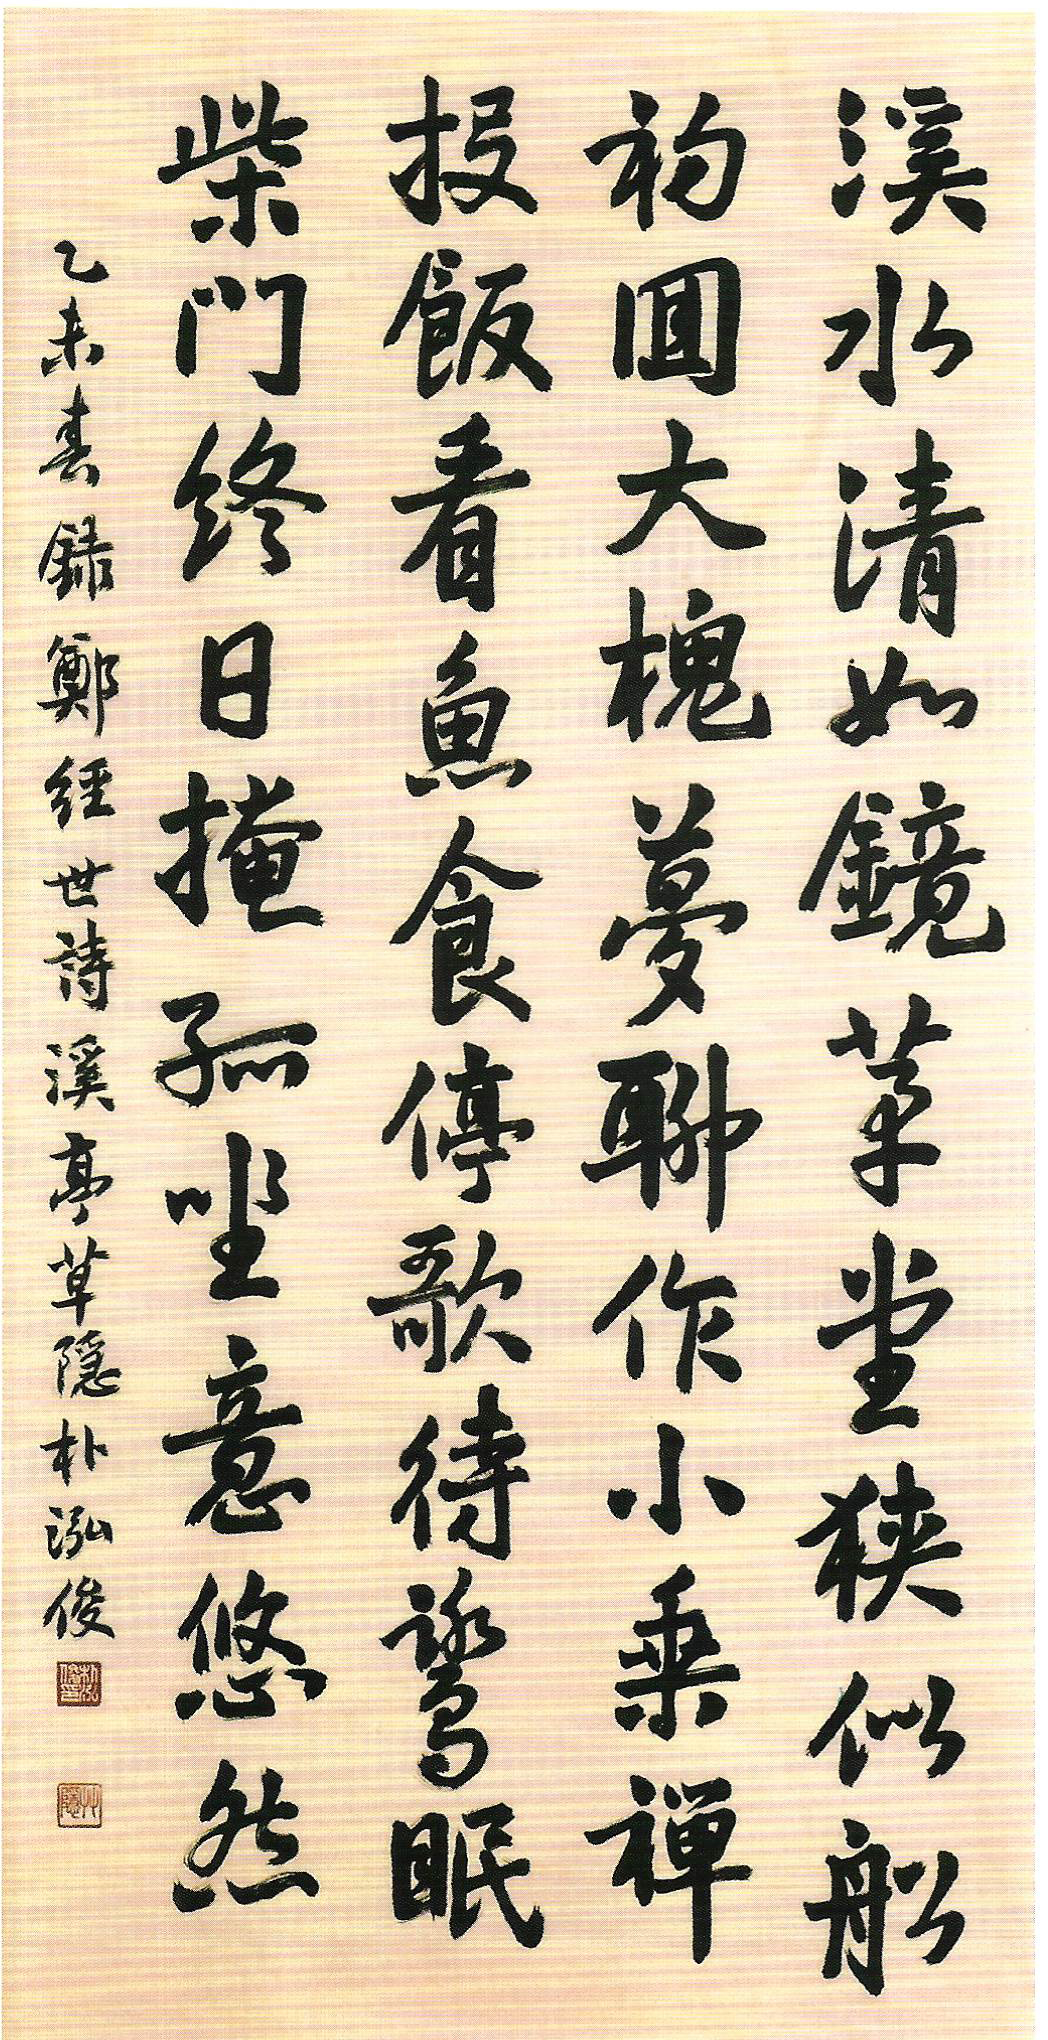 溪水清如鏡茅堂狹似船
初囬大槐夢聊作小乘禪
投飯看魚食停歌待鷺眠
柴門終日掩孤坐意悠然
乙未春錄鄭經世詩溪亭草隱朴泓俊